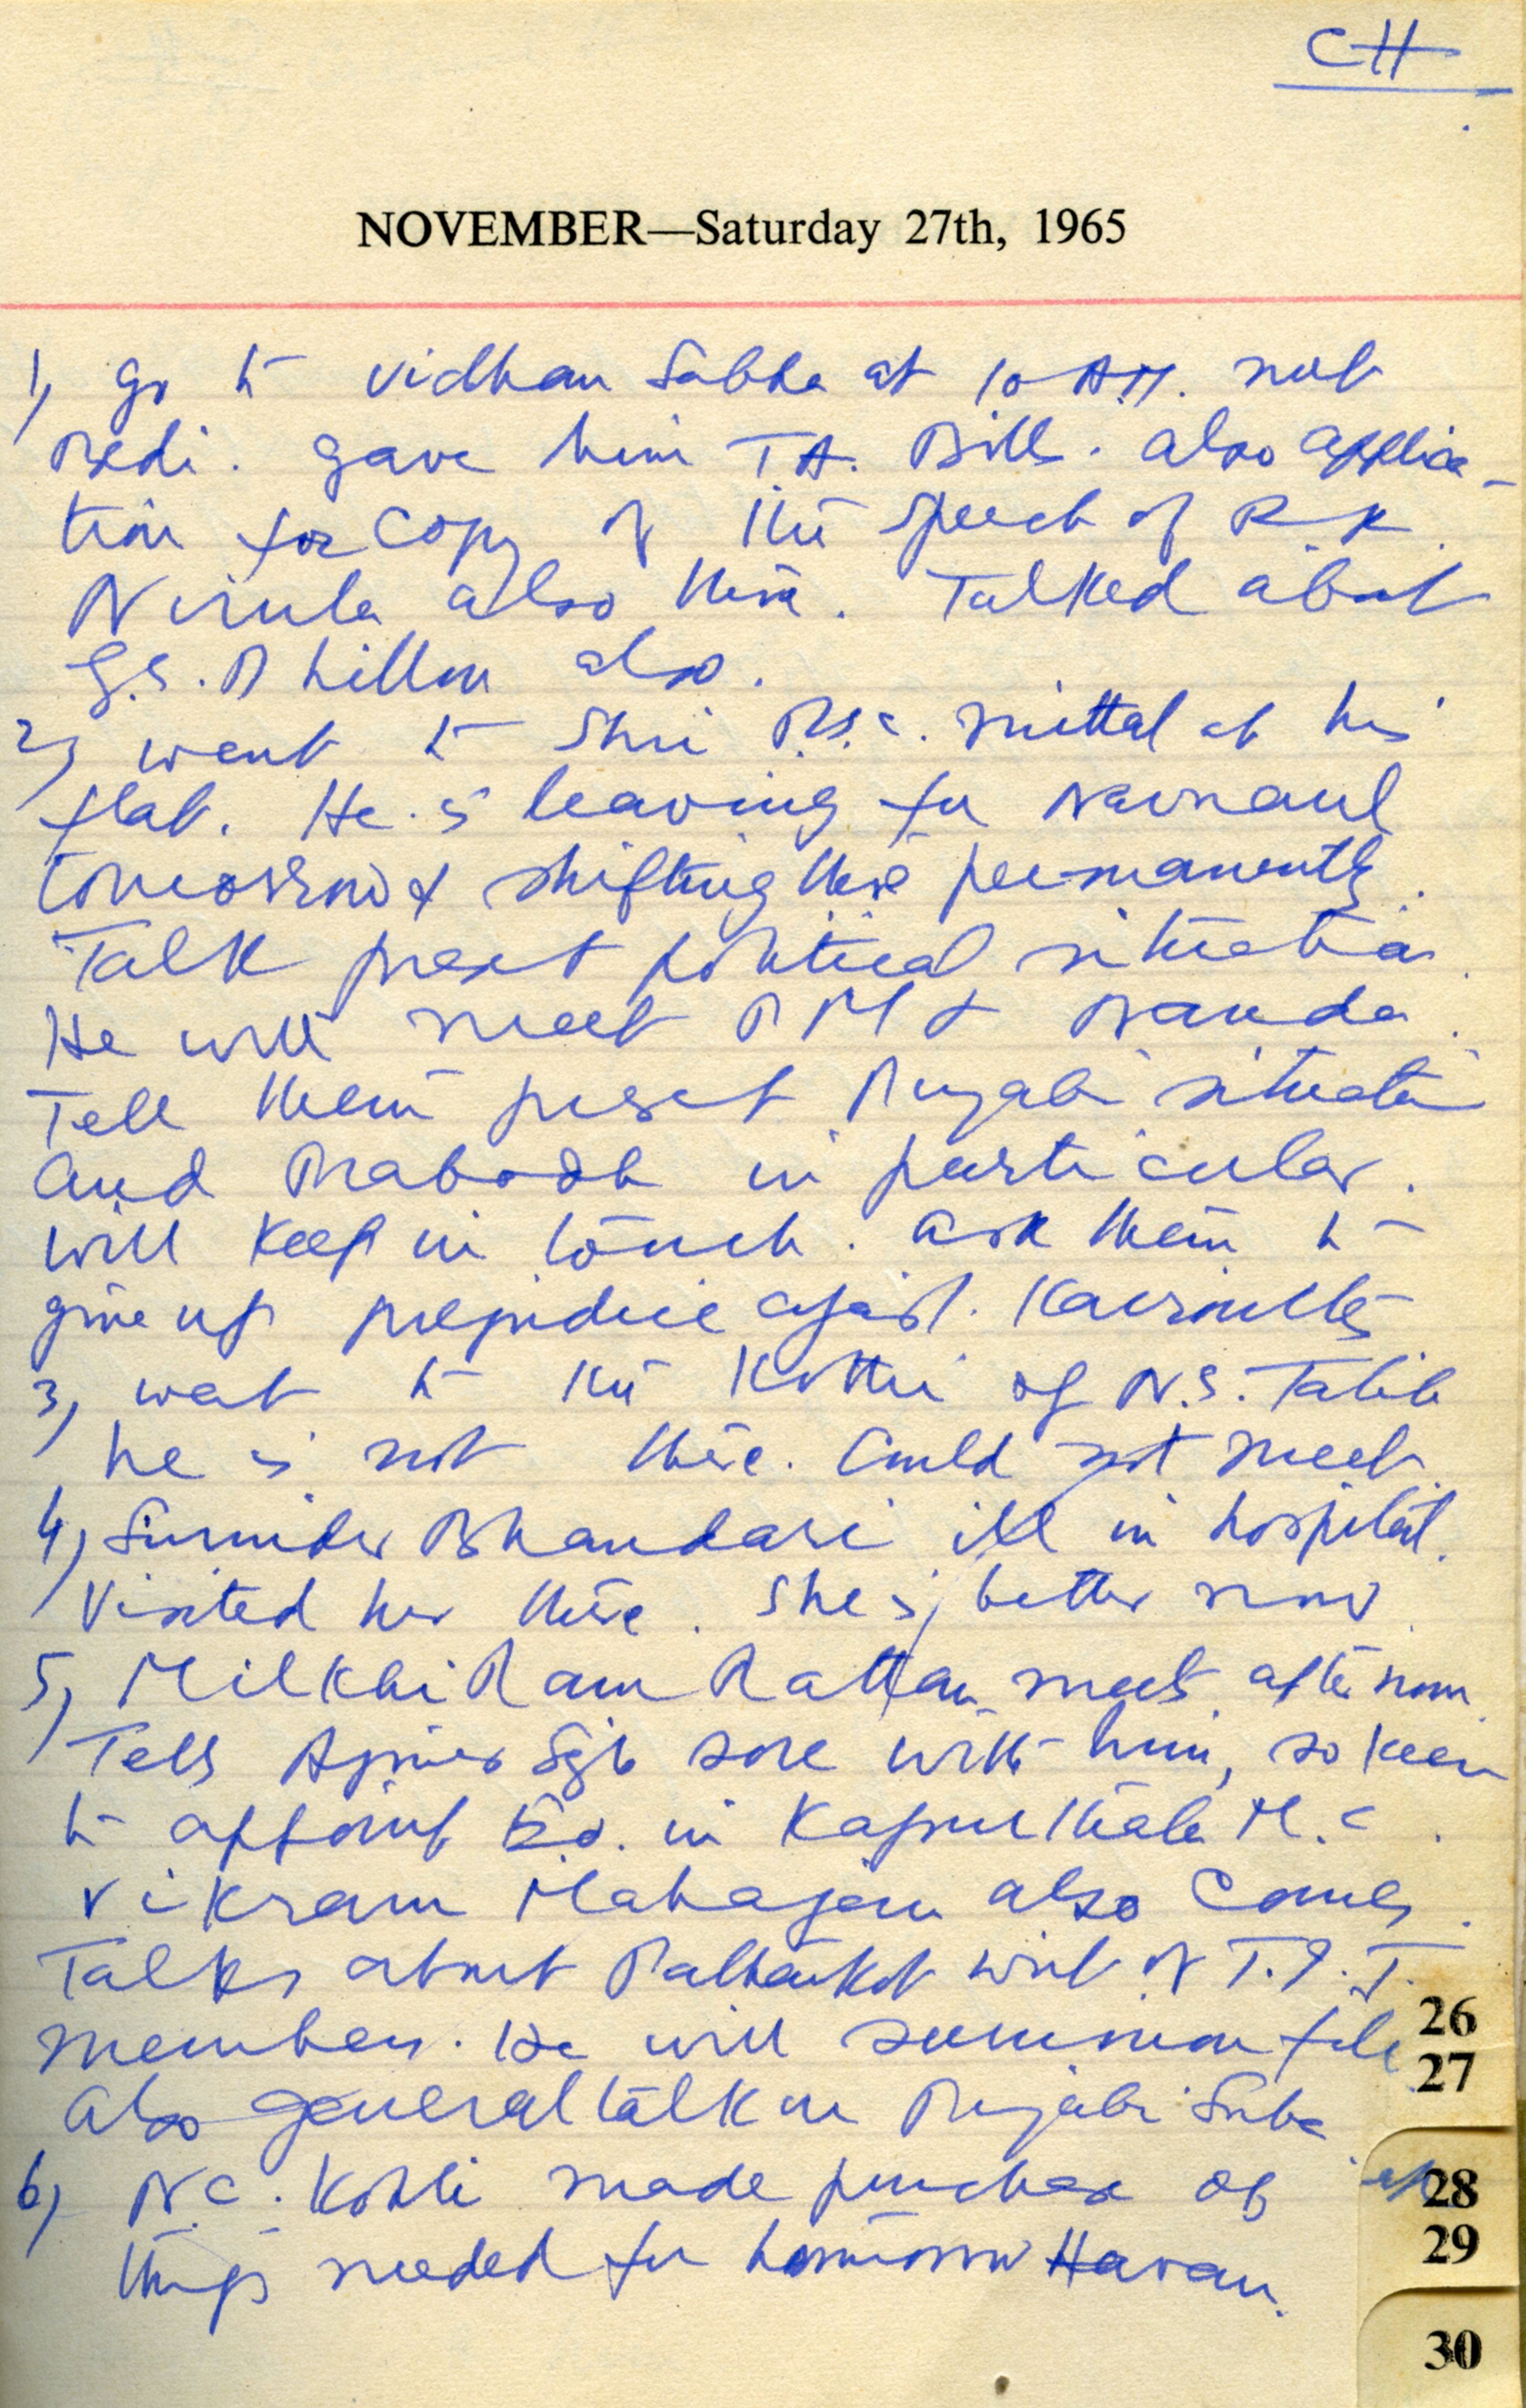 CH
NOVEMBER—Saturday 27th, 1965
1, go to Vidhan Sabha at 10 A.M. met
Bedi. gave him T.A. Bills. also applica-
tion for copy of the speech of R.K.
Nirula also there. Talked about
G.S. Dhillon also.
2, went to Shri B.S.C. Mittal at his
flat. He is leaving for Narnaul
tomorrow & shifting there permanently.
Talk present political situation.
He will meet PM & Nanda.
Tell them present Punjab situation
and Prabodh in particular.
Will keep in touch. ask them to
give up prejudice against Kaironites
3, went to the Kothi of N.S. Talib
he is not there. Could not meet.
4, Surinder Bhandari ill in hospital.
Visited her there. She is better now.
5, Milkhi Ram Rattan meets afternoon.
Tells Ajmer Sgh sore with him, so keen
to appoint E.O. in Kapurthala M.C.
Vikram Mahajan also comes.
Talks about Pathankot writ of T.I.T.
members. He will summon file
also general talk on Punjabi Suba
6, N.C. Kohli made purchase of
things needed for tomorrow Havan.
26
27
28
29
30